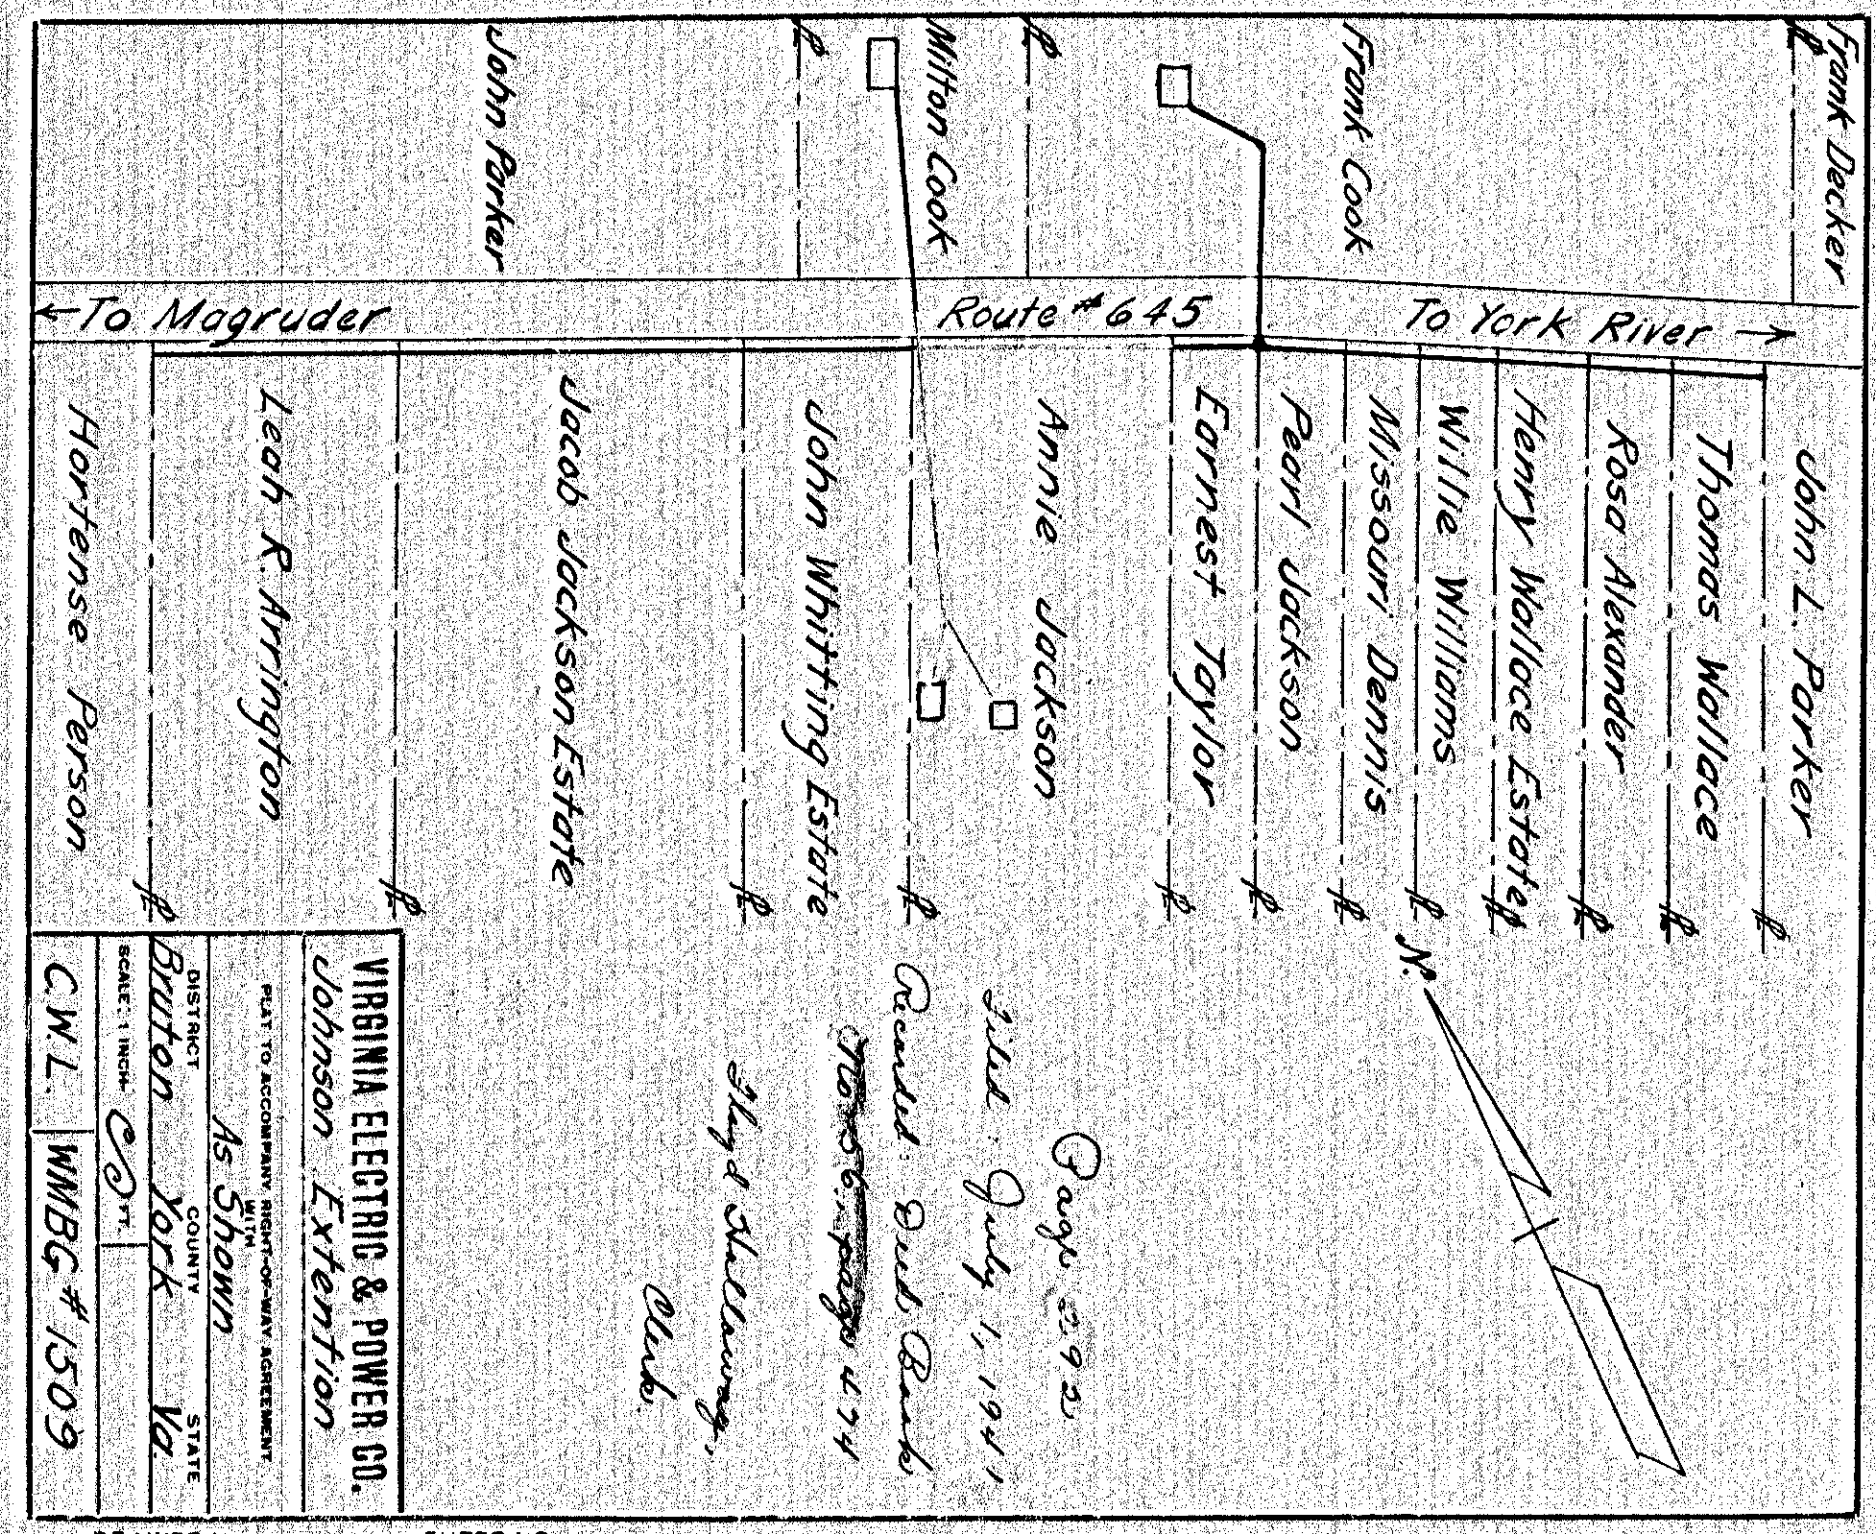 Frank Decker
Frank Cook
Milton Cook
John Parker
←To Magruder
Route #645
To York River →
John L. Parker
Thomas Wallace
Rosa Alexander
Henry Wallace Estate
Willie Williams
Missouri Dennis
Pearl Jackson
Earnest Taylor
Annie Jackson
John Whitting Estate
Jacob Jackson Estate
Leah R. Arrington
Hortense Person
N.
Page 292
Filed: July 1, 1941
Recorded: Deed Book
No 56: page 474
Floyd Holloway,
Clerk.
VIRGINIA ELECTRIC & POWER CO.
Johnson Extention
PLAT TO ACCOMPANY RIGHT-OF-WAY AGREEMENT
WITH
As Shown
DISTRICT COUNTY STATE
Bruton York Va.
SCALE: 1 INCH FT.
C.W.L. WMBG # 1509